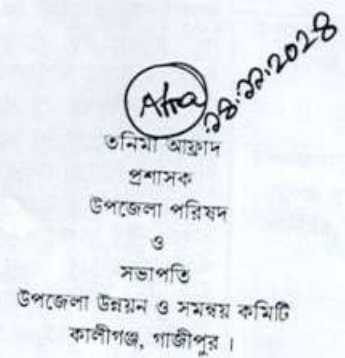 Afra
তনিমা আফ্রাদ
প্রশাসক
উপজেলা পরিষদ
ও
সভাপতি
উপজেলা উন্নয়ন ও সমন্বয় কমিটি
কালীগঞ্জ, গাজীপুর ।